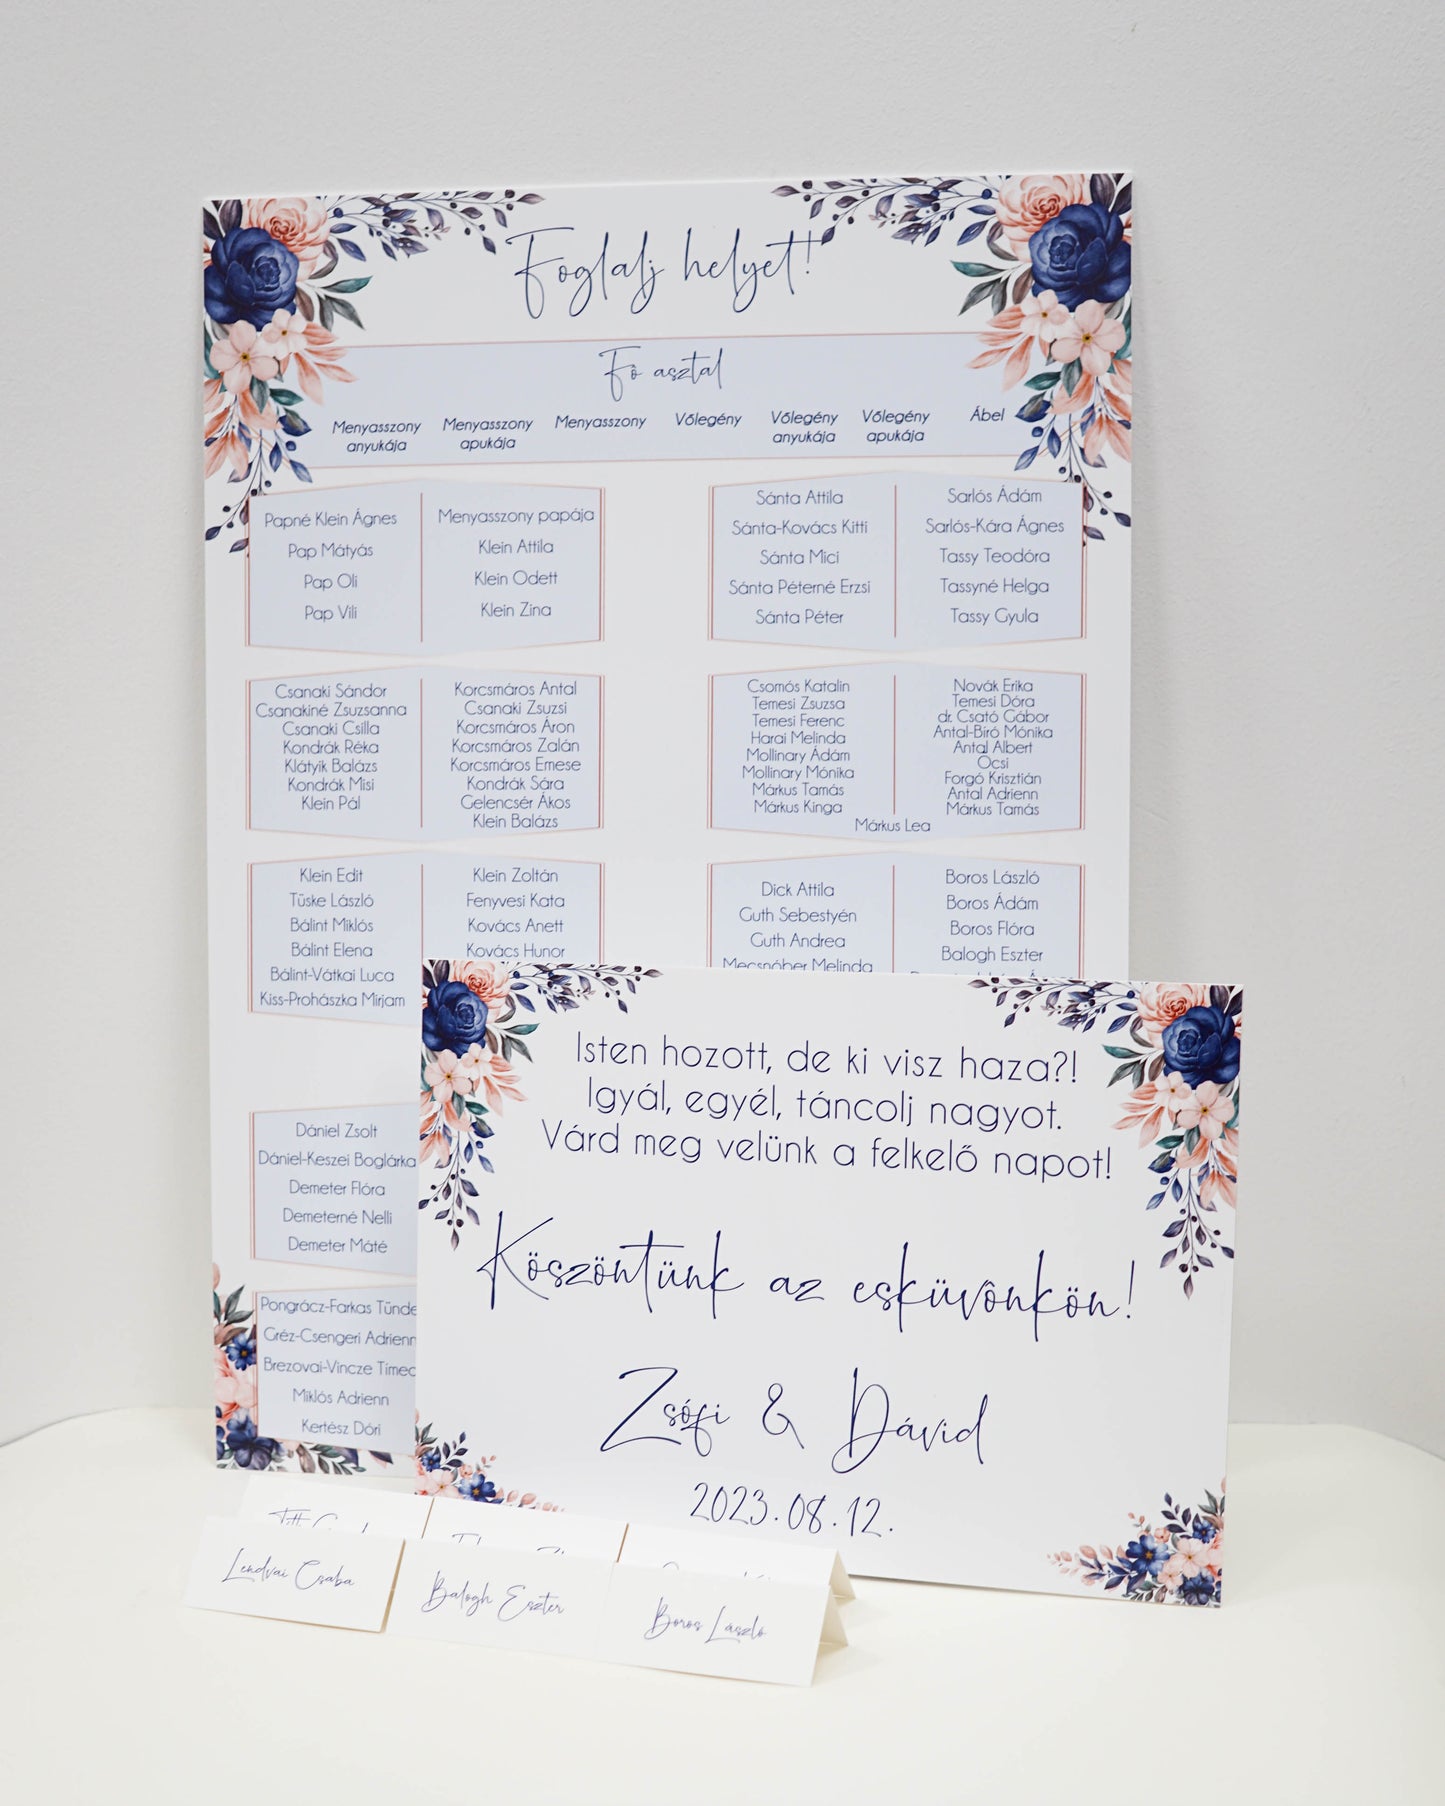 Foglalj helyet!
Fő asztal
Menyasszony
anyukája
Menyasszony
apukája
Menyasszony
Vőlegény
Vőlegény
anyukája
Vőlegény
apukája
Ábel
Papné Klein Ágnes
Pap Mátyás
Pap Oli
Pap Vili
Menyasszony papája
Klein Attila
Klein Odett
Klein Zina
Sánta Attila
Sánta-Kovács Kitti
Sánta Mici
Sánta Péterné Erzsi
Sánta Péter
Sarlós Ádám
Sarlós-Kára Ágnes
Tassy Teodóra
Tassyné Helga
Tassy Gyula
Csanaki Sándor
Csanakiné Zsuzsanna
Csanaki Csilla
Kondrák Réka
Klátyik Balázs
Kondrák Misi
Klein Pál
Korcsmáros Antal
Csanaki Zsuzsi
Korcsmáros Áron
Korcsmáros Zalán
Korcsmáros Emese
Kondrák Sára
Gelencsér Ákos
Klein Balázs
Csomós Katalin
Temesi Zsuzsa
Temesi Ferenc
Harai Melinda
Mollinary Ádám
Mollinary Mónika
Márkus Tamás
Márkus Kinga
Novák Erika
Temesi Dóra
dr. Csató Gábor
Antal-Bíró Mónika
Antal Albert
Öcsi
Forgó Krisztián
Antal Adrienn
Márkus Tamás
Márkus Lea
Klein Edit
Tüske László
Bálint Miklós
Bálint Elena
Bálint-Vátkai Luca
Kiss-Prohászka Mirjam
Klein Zoltán
Fenyvesi Kata
Kovács Anett
Kovács Hunor
Dick Attila
Guth Sebestyén
Guth Andrea
Mecsnóber Melinda
Boros László
Boros Ádám
Boros Flóra
Balogh Eszter
Dániel Zsolt
Dániel-Keszei Boglárka
Demeter Flóra
Demeterné Nelli
Demeter Máté
Pongrácz-Farkas Tünde
Gréz-Csengeri Adrienn
Brezovai-Vincze Timea
Miklós Adrienn
Kertész Dóri
Isten hozott, de ki visz haza?!
Igyál, egyél, táncolj nagyot.
Várd meg velünk a felkelő napot!
Köszöntünk az esküvőnkön!
Zsófi & Dávid
2023.08.12.
Lendvai Csaba
Balogh Eszter
Boros László